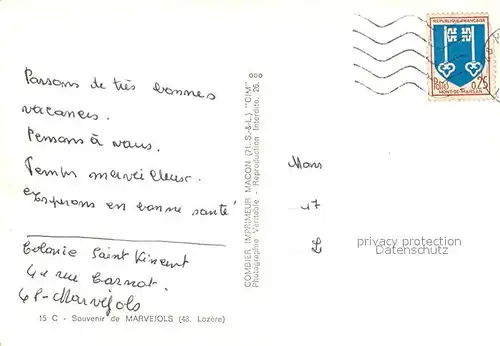 Passons de très bonnes
vacances.
Pensons à vous.
Temps merveilleux.
Espérons en bonne santé
Colonie Saint Vincent
rue Carnot.
48-Marvejols
15 C - Souvenir de MARVEJOLS (48. Lozère)
COMBIER IMPRIMEUR MACON (71. S.-&-L.) "CIM"
Photographie Véritable - Reproduction Interdite. 26.
REPUBLIQUE FRANÇAISE
Postes 0,25
MONT-DE-MARSAN
Mons
17
privacy protection
Datenschutz